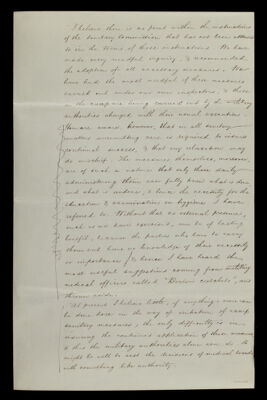 I believe there is no point within the instructions
of the Sanitary Commission that has not been attended
to in the terms of those instructions. We have
made every needful inquiry, & recommended
the adoption of all necessary measures. You
have had the most needful of these measures
carried out under our own inspectors, & those
in the camp are being carried out by the military
authorities charged with their usual execution.
You are aware, however, that in all sanitary
matters unremitting care is required to ensure
continual success, & that any relaxation may
do mischief. The measures themselves, moreover,
are of such a nature that only those daily
administering them can fully know what is done
and what is undone, & hence the necessity for the
education & examination in hygiene I have
referred to. Without that no external pressure,
such as we have exercised, can be of lasting
benefit, because the parties who have to carry
them out have no knowledge of their necessity
or importance, & hence I have heard the
most useful suggestions coming from military
medical officers called "Doctors' crotchets", and
thrown aside.
At present I believe little, if anything more can
be done here in the way of initiation of camp
sanitary measures; the only difficulty is in
insuring the continued application of these measures
& this the military authorities alone can do. It
might be well to vest the decisions of medical boards
with something like authority.